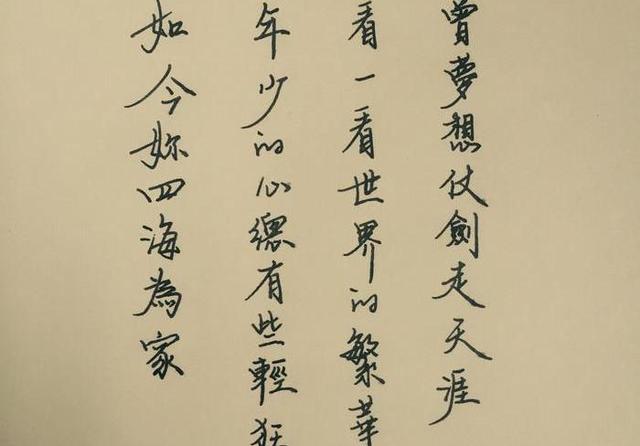 曾夢想仗劍走天涯
看一看世界的繁華
年少的心總有些輕狂
如今妳四海為家